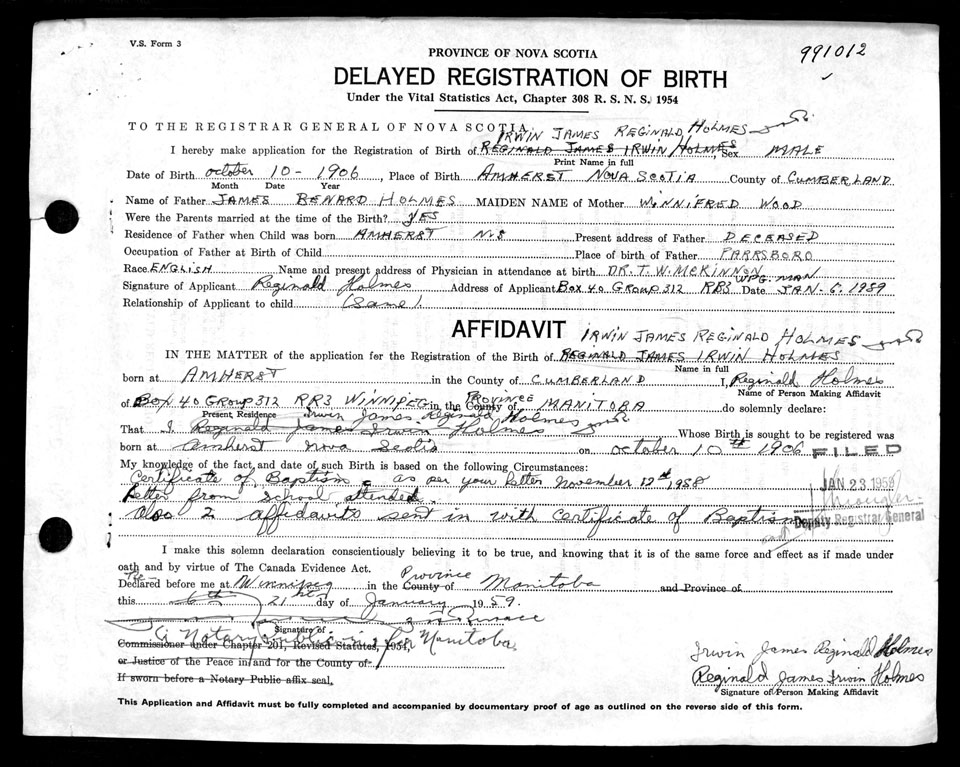 V.S. Form 3
991012
PROVINCE OF NOVA SCOTIA
DELAYED REGISTRATION OF BIRTH
Under the Vital Statistics Act, Chapter 308 R. S. N. S. 1954
TO THE REGISTRAR GENERAL OF NOVA SCOTIA
IRWIN JAMES REGINALD HOLMES
I hereby make application for the Registration of Birth of REGINALD JAMES IRWIN HOLMES, Sex MALE
Print Name in full
Date of Birth October 10 - 1906, Place of Birth AMHERST NOVA SCOTIA County of CUMBERLAND
Month Date Year
Name of Father JAMES BENARD HOLMES MAIDEN NAME of Mother WINNIFRED WOOD
Were the Parents married at the time of the Birth? YES
Residence of Father when Child was born AMHERST N.S Present address of Father DECEASED
Occupation of Father at Birth of Child Place of birth of Father PARRSBORO
Race ENGLISH Name and present address of Physician in attendance at birth DR. T. W. MCKINNON
WPG. MAN
Signature of Applicant Reginald Holmes Address of Applicant BOX 40 GROUP 312 RR3 Date JAN-6, 1959
Relationship of Applicant to child (Same).
AFFIDAVIT
IRWIN JAMES REGINALD HOLMES
IN THE MATTER of the application for the Registration of the Birth of REGINALD JAMES IRWIN HOLMES
Name in full
born at AMHERST in the County of CUMBERLAND I, Reginald Holmes
Name of Person Making Affidavit
PROVINCE
of BOX 40 GROUP 312 RR3 WINNIPEG in the County of MANITOBA do solemnly declare:
Present Residence
Irwin James Reginald Holmes
That I Reginald James Irwin Holmes Whose Birth is sought to be registered was
born at Amherst Nova Scotia on October 10th 1906
FILED
My knowledge of the fact and date of such Birth is based on the following Circumstances:
Certificate of Baptism as per your letter November 12th, 1958
JAN 23 1959
Letter from school attended.
Also 2 affidavits sent in with Certificate of Baptism
Deputy Registrar General
I make this solemn declaration conscientiously believing it to be true, and knowing that it is of the same force and effect as if made under
oath and by virtue of The Canada Evidence Act.
Province
Declared before me at Winnipeg in the County of Manitoba and Province of
this 6th 21st day of January 1959.
Signature of
A Notary Public in & for Manitoba.
Commissioner under Chapter 201, Revised Statutes, 1954,
or Justice of the Peace in and for the County of
Irwin James Reginald Holmes
Reginald James Irwin Holmes
If sworn before a Notary Public affix seal.
Signature of Person Making Affidavit
This Application and Affidavit must be fully completed and accompanied by documentary proof of age as outlined on the reverse side of this form.